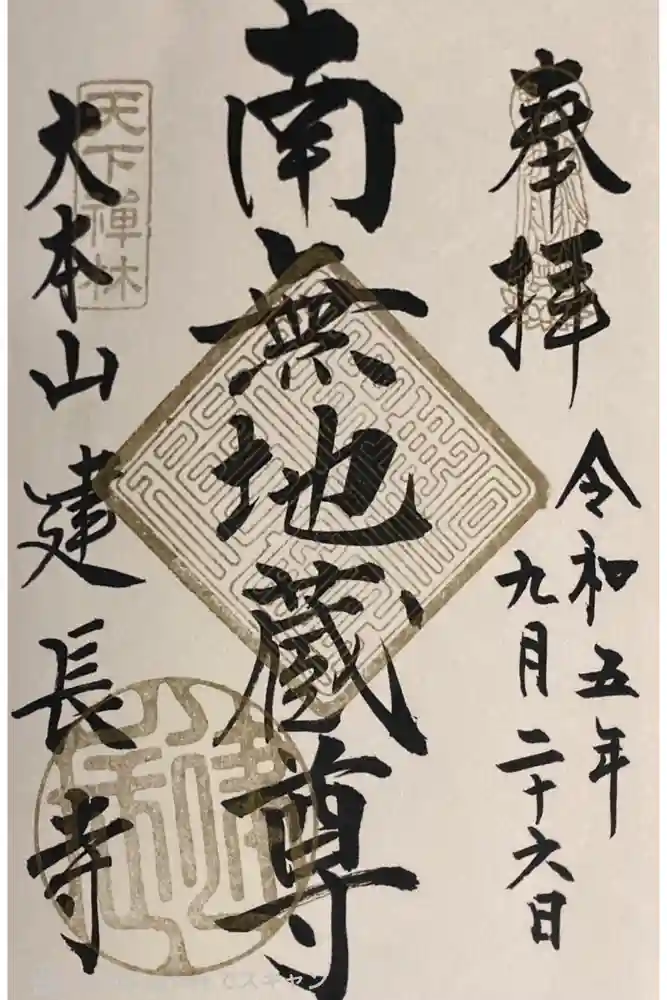 奉拝
令和五年
九月二十六日
南無地蔵尊
天下禅林
大本山建長寺
でスキャン